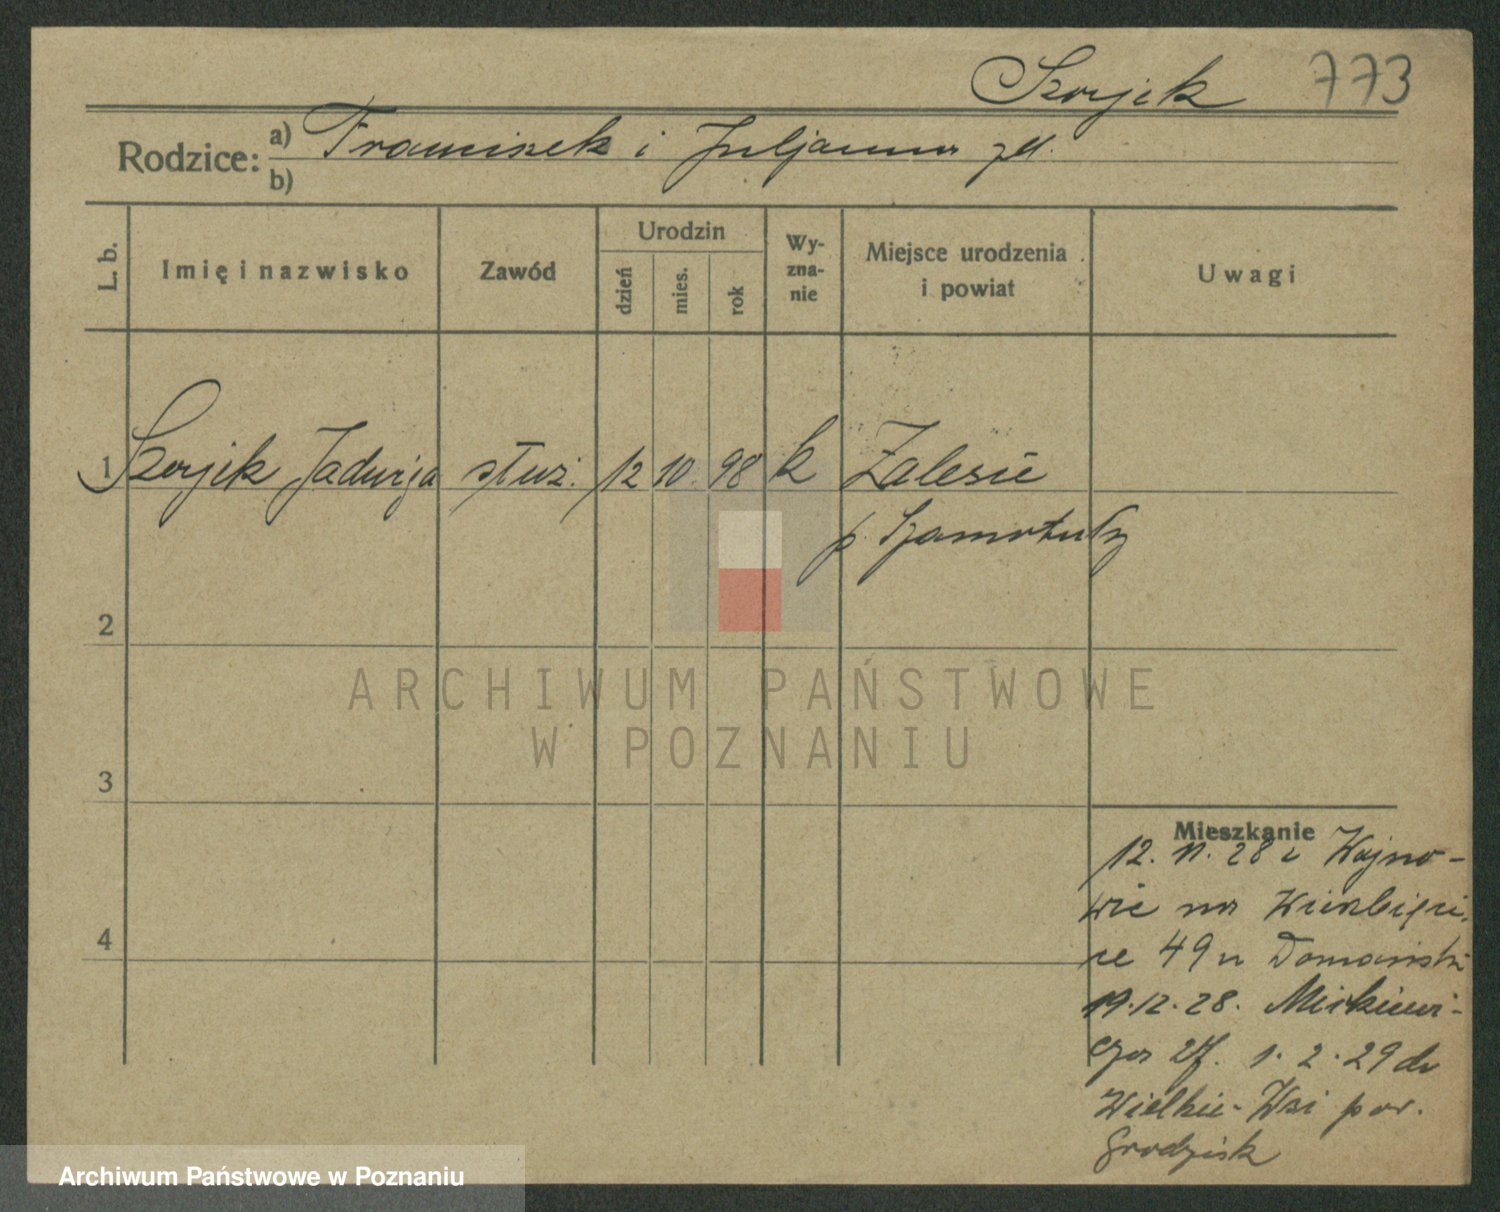 Szorjek 773
Rodzice:
a) Franciszek i Juljanna
b)
L. b.
Imię i nazwisko
Zawód
Urodzin
dzień
mies.
rok
Wy-
zna-
nie
Miejsce urodzenia
i powiat
Uwagi
1 Szorjek Jadwiga służ. 12 10. 98 k Zalesie
p. Szamotuły
2
3
4
Mieszkanie
12. 11. 28 z Wojno-
wic na Wierzbięci-
ce 49 u Domański
19.12.28. Mickiewi-
cza 27. 1. 2. 29 do
Wielkie-Wsi pow.
Grodzisk
ARCHIWUM PAŃSTWOWE
W POZNANIU
Archiwum Państwowe w Poznaniu